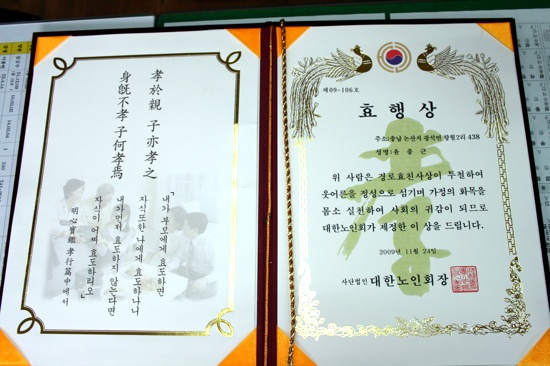 孝於親 子亦孝之
身旣不孝 子何孝焉
「내가 부모에게 효도하면
자식 또한 나에게 효도하나니
내가 먼저 효도하지 않는다면
자식이 어찌 효도하리오」
明心寶鑑 孝行篇 中에서
제09-106호
효행상
주소:충남 논산시 광석면 항월2리 438
성명:윤종근
위 사람은 경로효친사상이 투철하여
웃어른을 정성으로 섬기며 가정의 화목을
몸소 실천하여 사회의 귀감이 되므로
대한노인회가 제정한 이 상을 드립니다.
2009년 11월 24일
사단법인 대한노인회장
孝